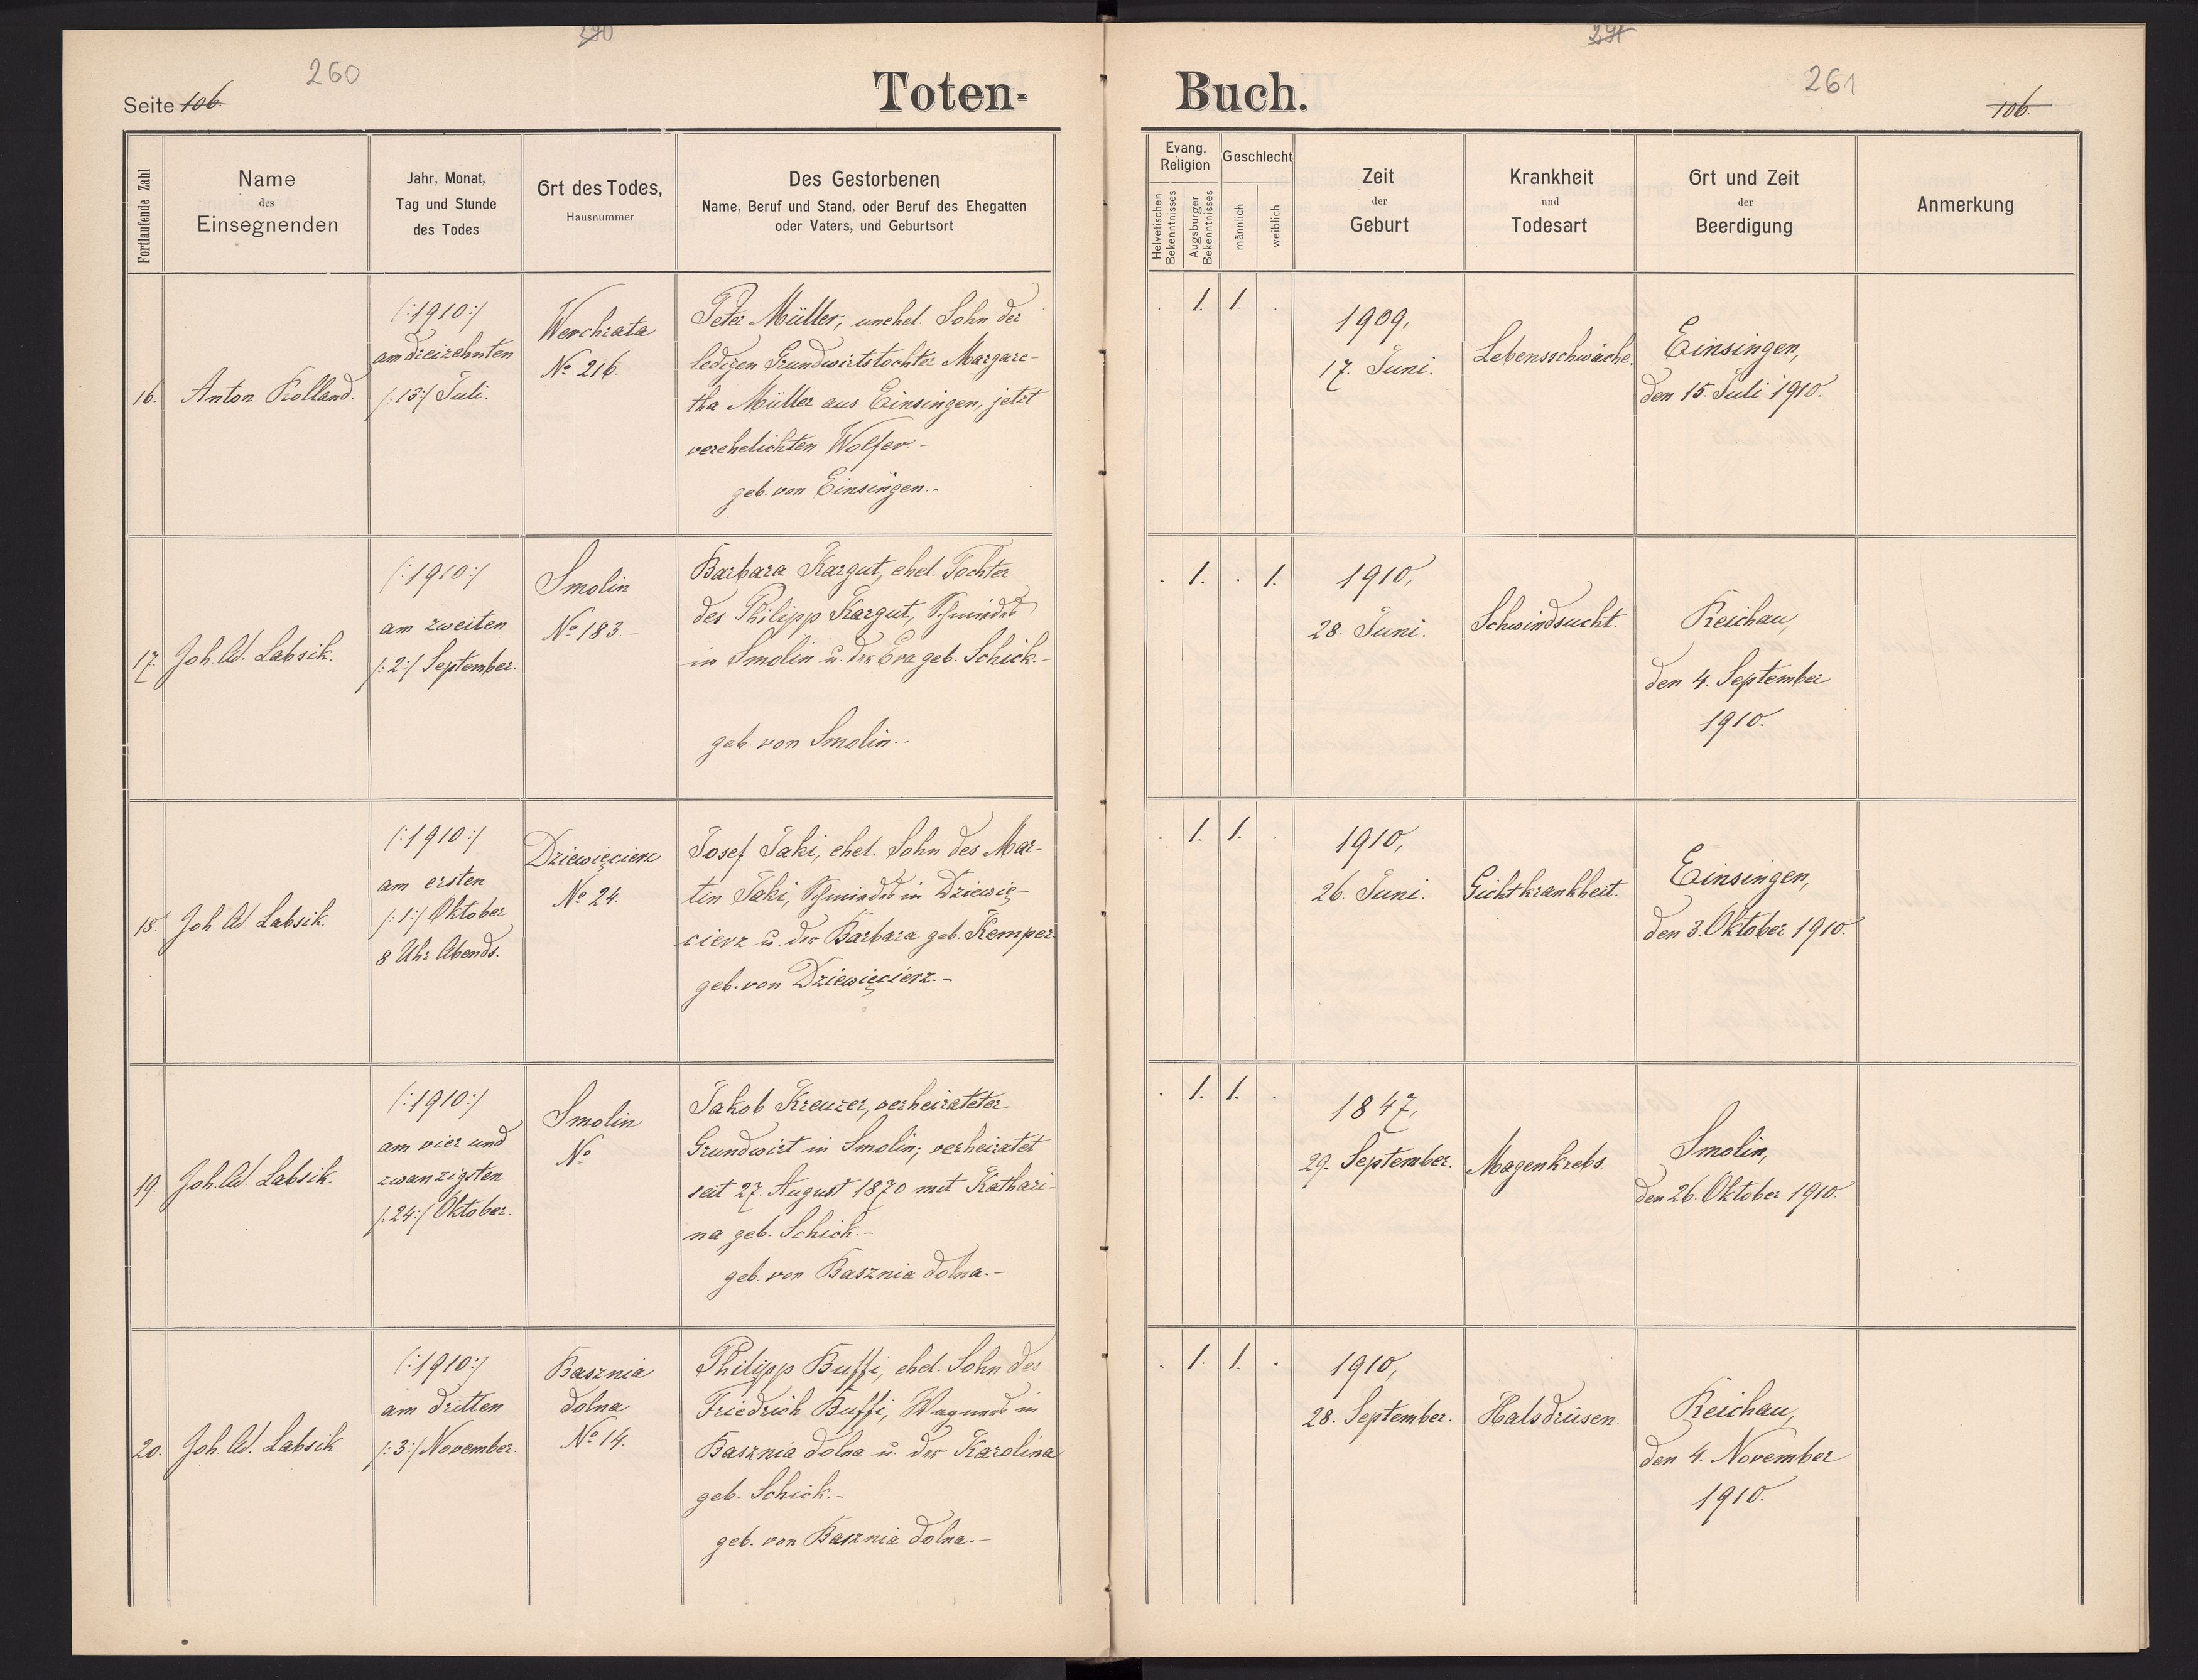 260
Seite 106.
Toten-
Fortlaufende Zahl
Name
des
Einsegnenden
Jahr, Monat,
Tag und Stunde
des Todes
Ort des Todes,
Hausnummer
Des Gestorbenen
Name, Beruf und Stand, oder Beruf des Ehegatten
oder Vaters, und Geburtsort
16.
Anton Rolland.
(:1910:)
am dreizehnten
/:13:/ Juli.
Werchrata
No 216.
Peter Müller, unehel. Sohn der
ledigen Grundwirtstochter Margare-
tha Müller aus Einsingen, jetzt
verehelichten Wolfer.-
geb. von Einsingen.-
17.
Joh. Ad. Labsik.
(:1910:/
am zweiten
/:2:/ September.
Smolin
No 183.-
Barbara Kargut, ehel. Tochter
des Philipp Kargut, Schmied
in Smolin u. der Eva geb. Schick.-
geb. von Smolin.-
18.
Joh. Ad. Labsik.
(:1910:)
am ersten
/:1:/ Oktober
8 Uhr Abends.
Dziewięcierz
No 24.
Josef Jaki, ehel. Sohn des Mar-
tin Jaki, Schmied in Dziewię-
cierz u. der Barbara geb. Kemper.
geb. von Dziewięcierz.-
19.
Joh. Ad. Labsik.
(:1910:)
am vier und
zwanzigsten
/:24:/ Oktober.
Smolin
No
Jakob Kreuzer, verheirateter
Grundwirt in Smolin; verheiratet
seit 27. August 1870 mit Kathari-
na geb. Schick.-
geb. von Basznia dolna.-
20.
Joh. Ad. Labsik.
(:1910:)
am dritten
/:3:/ November.
Basznia
dolna
No 14.
Philipp Buffi, ehel. Sohn des
Friedrich Buffi, in
Basznia dolna u. der Karolina
geb. Schick.-
geb. von Basznia dolna.-
261
Buch.
106.
Evang.
Religion
Helvetischen
Bekenntnisses
Augsburger
Bekenntnisses
Geschlecht
männlich
weiblich
Zeit
der
Geburt
Krankheit
und
Todesart
Ort und Zeit
der
Beerdigung
Anmerkung
. 1. 1. .
1909,
17. Juni.
Lebensschwäche.
Einsingen,
den 15. Juli 1910.
. 1. . 1.
1910,
28. Juni.
Schwindsucht.
Reichau,
den 4. September
1910.
. 1. 1. .
1910,
26. Juni.
Gichtkrankheit.
Einsingen,
den 3. Oktober 1910.
. 1. 1. .
1847,
29. September.
Magenkrebs.
Smolin,
den 26. Oktober 1910.
. 1. 1. .
1910,
28. September.
Halsdrüsen.
Reichau,
den 4. November
1910.